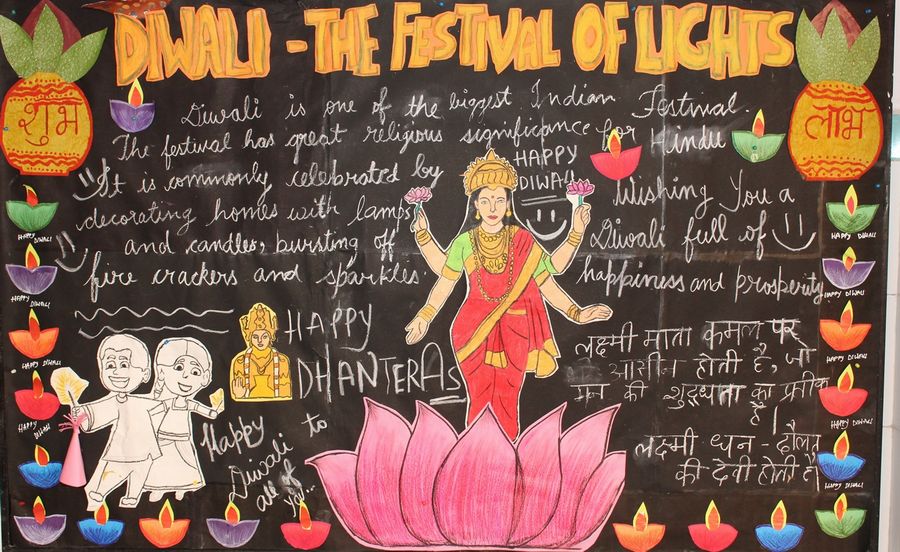 DIWALI - THE FESTIVAL OF LIGHTS
शुभ
लाभ
Diwali is one of the biggest Indian Festival.
The festival has great religious significance for Hindu
It is commonly celebrated by
decorating homes with lamps
and candles, bursting off
fire crackers and sparkles.
HAPPY
DIWALI
Wishing You a
Diwali full of
happiness and prosperity
HAPPY
DHANTERAS
Happy
Diwali to
all of
you...
लक्ष्मी माता कमल पर
आसीन होती है, जो
मन की शुद्धता का प्रतीक
है।
लक्ष्मी धन - दौलत
की देवी होती हैं
HAPPY DIWALI
HAPPY DIWALI
HAPPY DIWALI
HAPPY DIWALI
HAPPY DIWALI
HAPPY DIWALI
HAPPY DIWALI
HAPPY DIWALI
HAPPY DIWALI